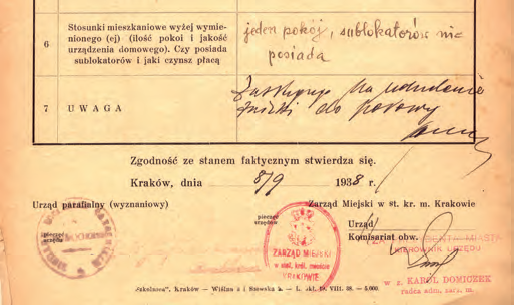 6
Stosunki mieszkaniowe wyżej wymie-
nionego (ej) (ilość pokoi i jakość
urządzenia domowego). Czy posiada
sublokatorów i jaki czynsz płacą
jeden pokój, sublokatorów nie
posiada
7
UWAGA
Zasługuje na udzielenie
zniżki do połowy
Zgodność ze stanem faktycznym stwierdza się.
Kraków, dnia 8/9 1938 r.
Urząd parafialny (wyznaniowy)
Zarząd Miejski w st. kr. m. Krakowie
pieczęć
urzędu
pieczęć
urzędu
Urząd
Komisariat obw.
ZARZĄD MIEJSKI
w stoł. król. mieście
KRAKOWIE
MIASTA
KIEROWNIK URZĘDU
w z. KAROL DOMIOZEK
radca adm. zarz. m.
„Szkolnoca", Kraków — Wiślna 2 i Szewska 2. — L. zkł. 19. VIII. 38. — 5.000.